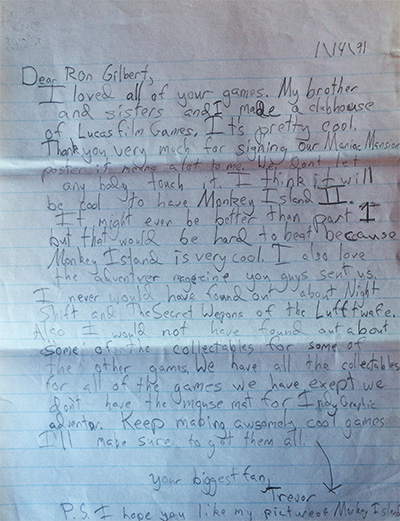 1/14/91
Dear Ron Gilbert,
I loved all of your games. My brother
and sisters and I made a clubhouse
of Lucasfilm Games. It's pretty cool.
Thank you very much for signing our Maniac Mansion
poster it means a lot to me. We don't let
any body touch it. I think it will
be cool to have Monkey Island II.
It might even be better than part I
but that would be hard to beat because
Monkey Island is very cool. I also love
the adventurer magazine you guys sent us.
I never would have found out about Night
Shift and The Secret Weapons of the Luftwafe.
Also I would not have found out about
some of the collectables for some of
the other games. We have all the collectables
for all of the games we have exept we
don't have the mouse mat for Indy Graphic
adventer. Keep making awsomely cool games
I'll make sure to get them all.
your biggest fan,
Trevor
P.S. I hope you like my picture of Monkey Island